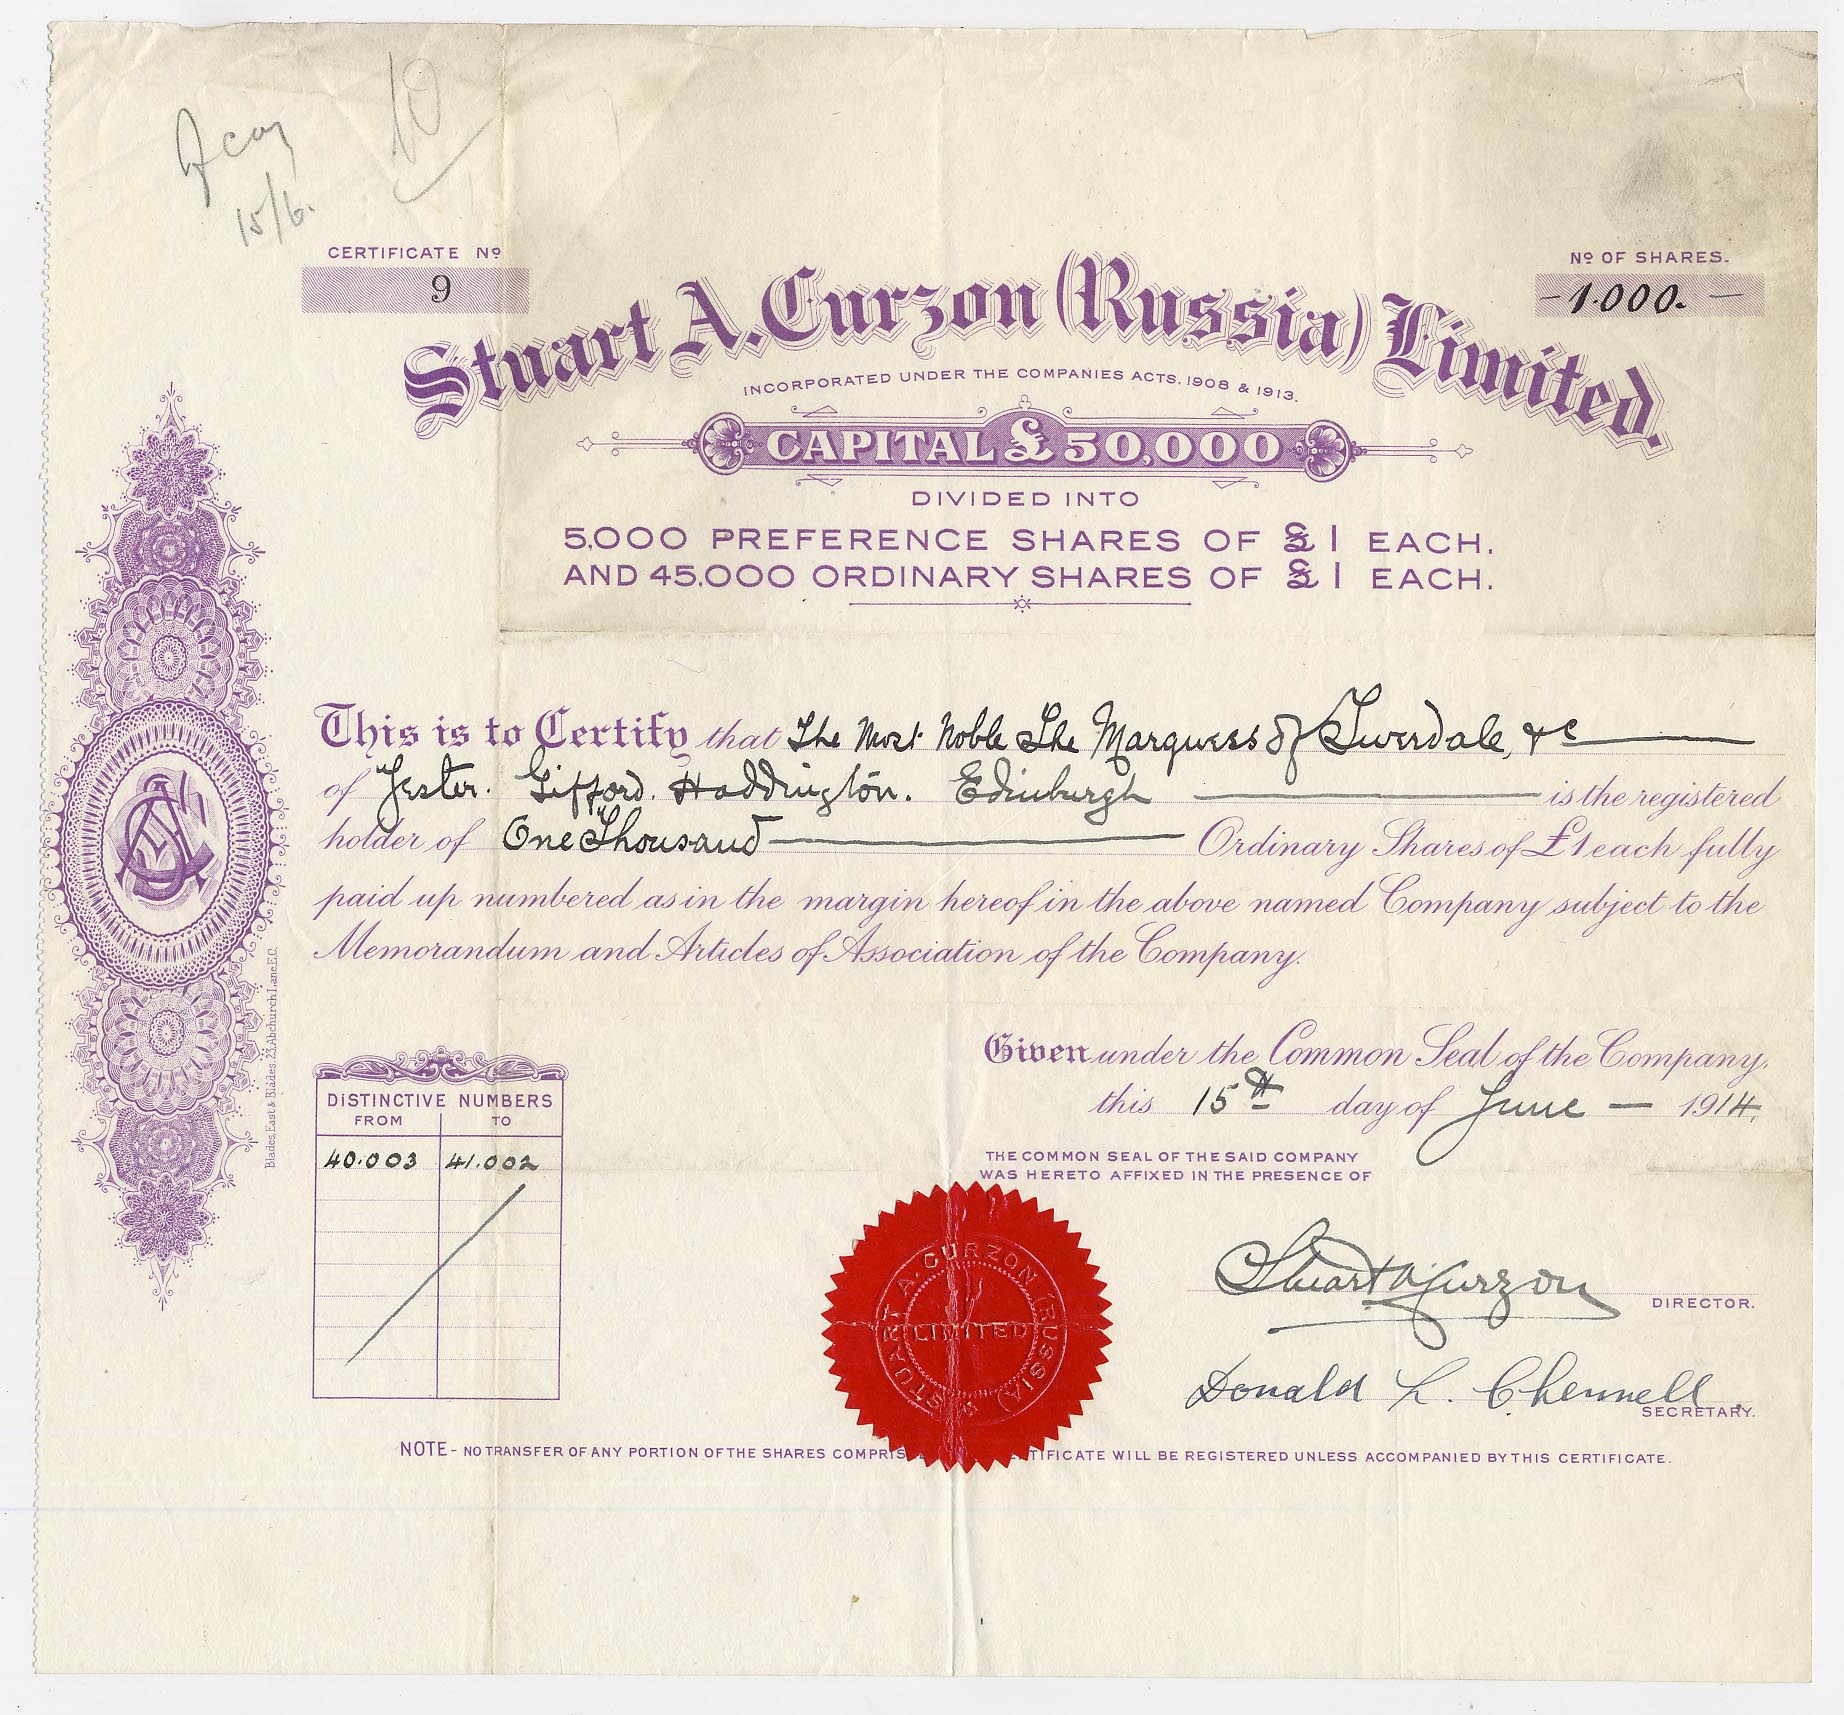 10
15/6.
CERTIFICATE Nº
9
Nº OF SHARES.
- 1.000. -
Stuart A. Curzon (Russia) Limited.
INCORPORATED UNDER THE COMPANIES ACTS, 1908 & 1913.
CAPITAL £50,000
DIVIDED INTO
5,000 PREFERENCE SHARES OF £1 EACH.
AND 45,000 ORDINARY SHARES OF £1 EACH.
This is to Certify that The Most Noble The Marquess of Tweedale, &c
of Yester. Gifford. Haddington. Edinburgh is the registered
holder of One Thousand Ordinary Shares of £1 each fully
paid up numbered as in the margin hereof in the above named Company subject to the
Memorandum and Articles of Association of the Company.
Blades, East & Blades, 23, Abchurch Lane, E.C.
Given under the Common Seal of the Company,
this 15th day of June - 1914.
DISTINCTIVE NUMBERS
FROM TO
40.003 41.002
THE COMMON SEAL OF THE SAID COMPANY
WAS HERETO AFFIXED IN THE PRESENCE OF
STUART A. CURZON (RUSSIA)
LIMITED
Stuart A Curzon
DIRECTOR.
Donald L. Chennell.
SECRETARY.
NOTE - NO TRANSFER OF ANY PORTION OF THE SHARES COMPRIS TIFICATE WILL BE REGISTERED UNLESS ACCOMPANIED BY THIS CERTIFICATE.